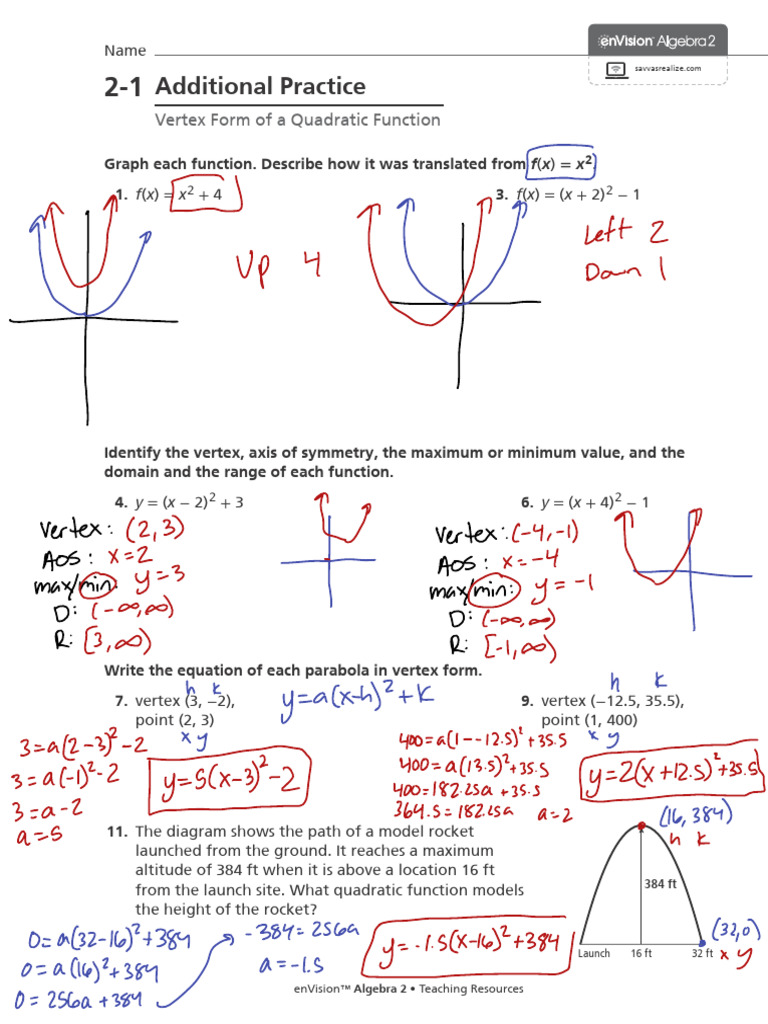 enVision™ Algebra 2
Name
savvasrealize.com
2-1 Additional Practice
Vertex Form of a Quadratic Function
Graph each function. Describe how it was translated from f(x) = x²
1. f(x) = x² + 4
3. f(x) = (x + 2)² − 1
Up 4
Left 2
Down 1
Identify the vertex, axis of symmetry, the maximum or minimum value, and the
domain and the range of each function.
4. y = (x − 2)² + 3
6. y = (x + 4)² − 1
vertex: (2, 3)
AOS: x=2
max/min: y=3
D: (-∞,∞)
R: [3,∞)
vertex: (-4,-1)
AOS: x=-4
max/min: y=-1
D: (-∞,∞)
R: [-1,∞)
Write the equation of each parabola in vertex form.
h k
7. vertex (3, −2),
point (2, 3)
x y
y=a(x-h)²+k
h k
9. vertex (−12.5, 35.5),
point (1, 400)
x y
3=a(2-3)²-2
3=a(-1)²-2
3=a-2
a=5
y=5(x-3)²-2
400=a(1--12.5)²+35.5
400=a(13.5)²+35.5
400=182.25a+35.5
364.5=182.25a a=2
y=2(x+12.5)²+35.5
11. The diagram shows the path of a model rocket
launched from the ground. It reaches a maximum
altitude of 384 ft when it is above a location 16 ft
from the launch site. What quadratic function models
the height of the rocket?
(16, 384)
h k
384 ft
(32,0)
x y
Launch 16 ft 32 ft
0=a(32-16)²+384
0=a(16)²+384
0=256a+384
-384=256a
a=-1.5
y=-1.5(x-16)²+384
enVision™ Algebra 2 • Teaching Resources